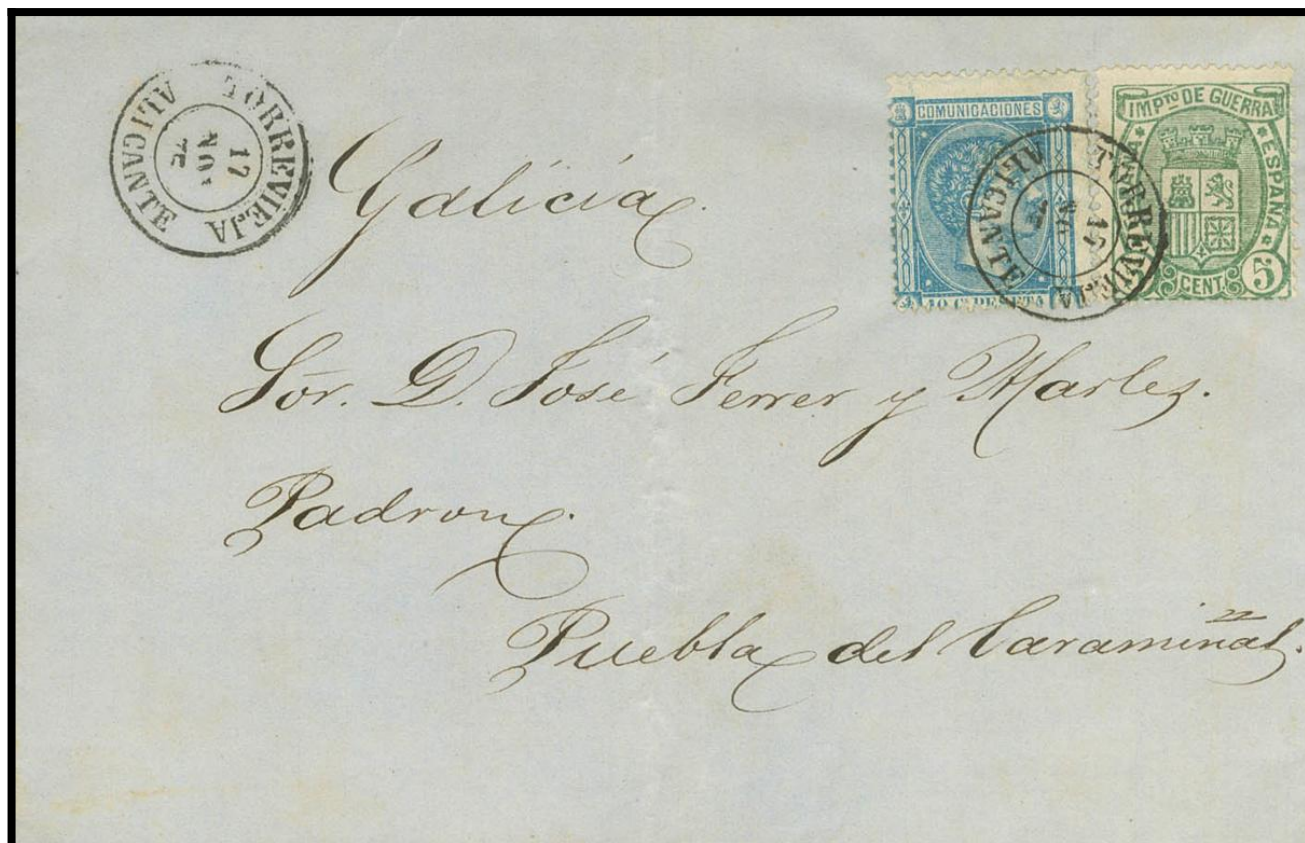 TORREVIEJA
17
NOV
75
ALICANTE
COMUNICACIONES
10 C. PESETA
IMPTO DE GUERRA
ESPAÑA
5
CENT.
TORREVIEJA
17
ALICANTE
Galicia.
Sor. D. José Ferrer y Marlés.
Padron.
Puebla del Caramiñal.